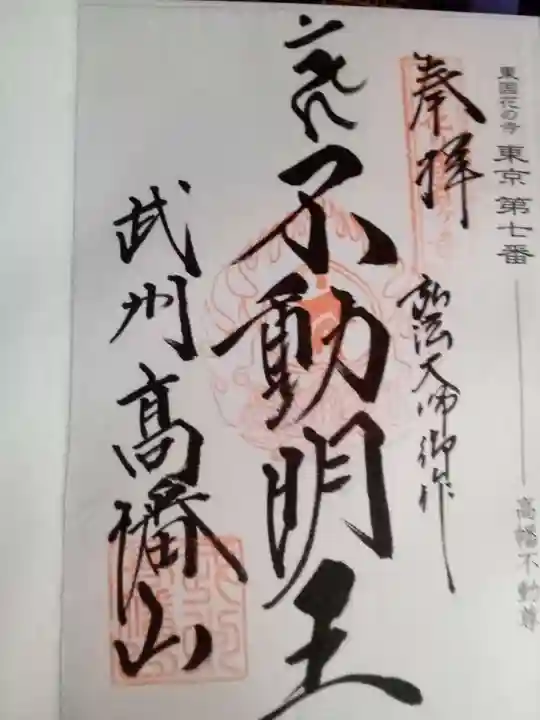 東国花の寺 東京第七番
高幡不動尊
奉拝
弘法大師御作
不動明王
武州高幡山